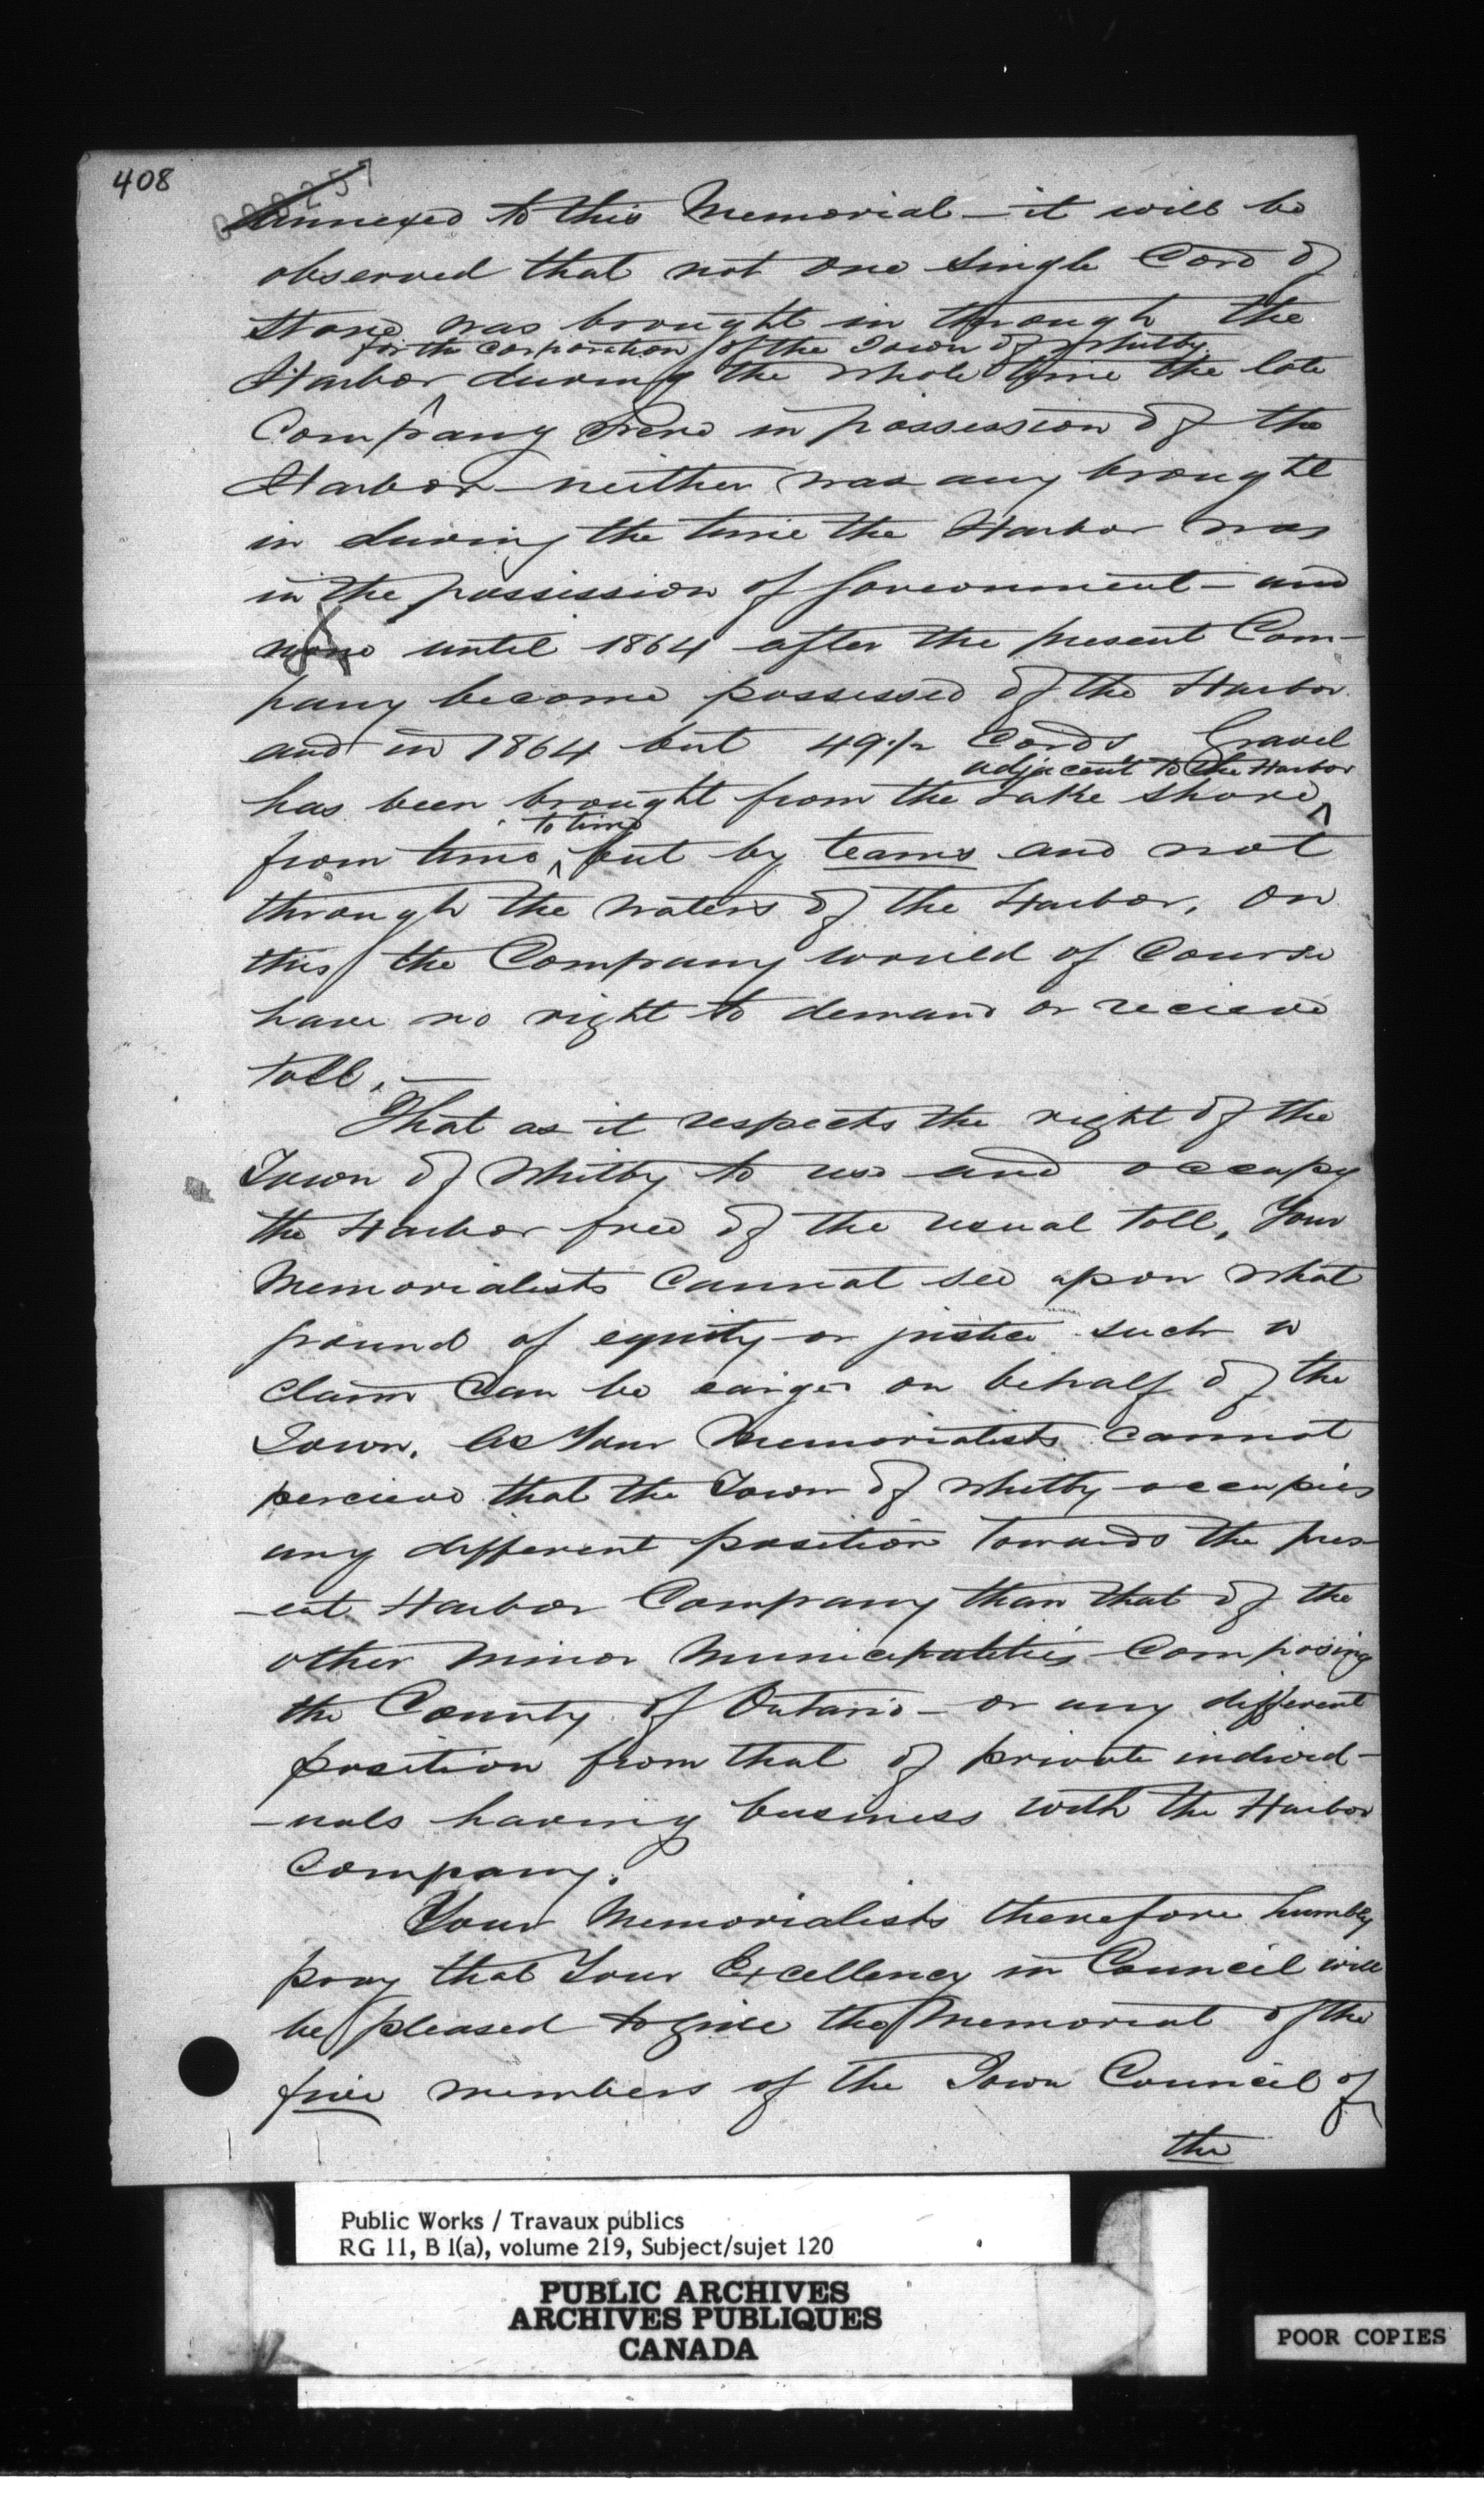 408
annexed to this Memorial — it will be
observed that not one single Cord of
stone was brought in through the
for the Corporation of the Town of Whitby
Harbor during the whole time the late
Company were in possession of the
Harbor — neither was any brought
in during the time the Harbor was
in the possission of Government — and
none until 1864 after the present Com-
pany become possessed of the Harbor.
and in 1864 but 49½ Cords Gravel
adjacent to the Harbor
has been brought from the Lake Shore
to time
from time but by teams and not
through the waters of the Harbor, on
this the Company would of Course
have no right to demand or recieve
toll. —
That as it respects the right of the
Town of Whitby to use and occupy
the Harbor free of the usual toll, Your
Memorialists Cannot see upon what
ground of equity or justice such a
claim Can be on behalf of the
Town. As Your Memorialists cannot
percieve that the Town of Whitby occupies
any different position towards the pres-
-ent Harbor Company than that of the
other minor Municipalities Composing
the County of Ontario — or any different
position from that of private individ-
-uals having business with the Harbor
Company.
Your Memorialists therefore humbly
pray that Your Excellency in Council will
be pleased to give the Memorial of the
five members of the Town Council of
the
Public Works / Travaux publics
RG 11, B 1(a), volume 219, Subject/sujet 120
PUBLIC ARCHIVES
ARCHIVES PUBLIQUES
CANADA
POOR COPIES